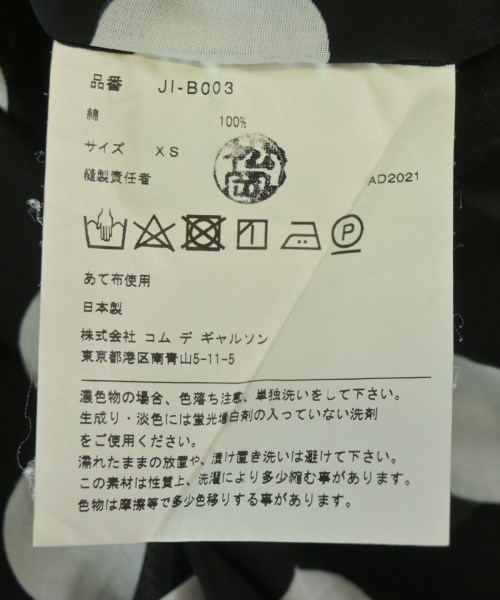 品番 JI-B003
綿 100%
サイズ XS
縫製責任者 松岡 AD2021
P
あて布使用
日本製
株式会社 コム デ ギャルソン
東京都港区南青山5-11-5
濃色物の場合、色落ち注意、単独洗いをして下さい。
生成り・淡色には蛍光増白剤の入っていない洗剤
をご使用ください。
濡れたままの放置や、漬け置き洗いは避けて下さい。
この素材は性質上、洗濯により多少縮む事があります。
色物は摩擦等で多少色移りする事があります。